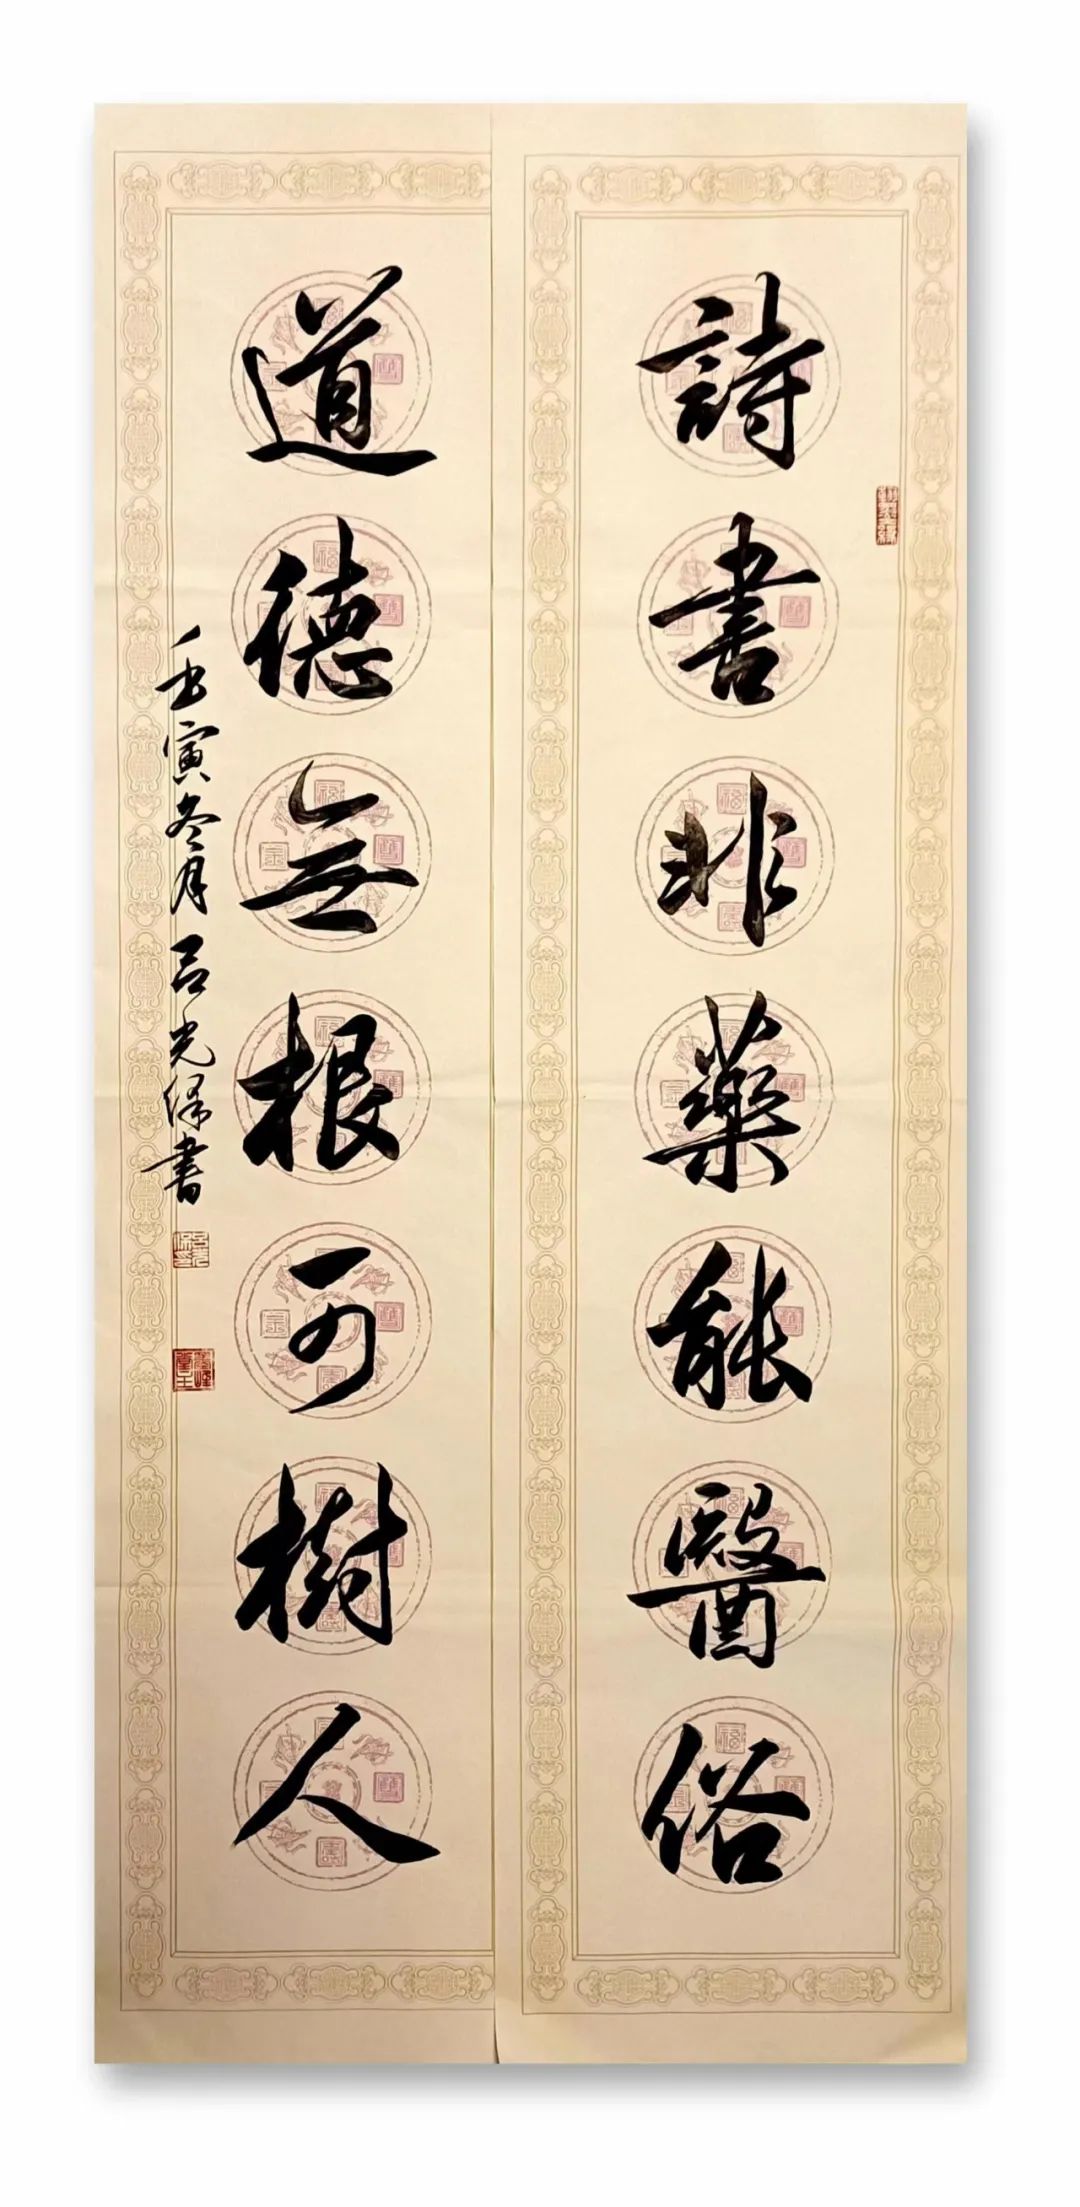 詩書非藥能醫俗
道德無根可樹人
壬寅冬月吕光保書